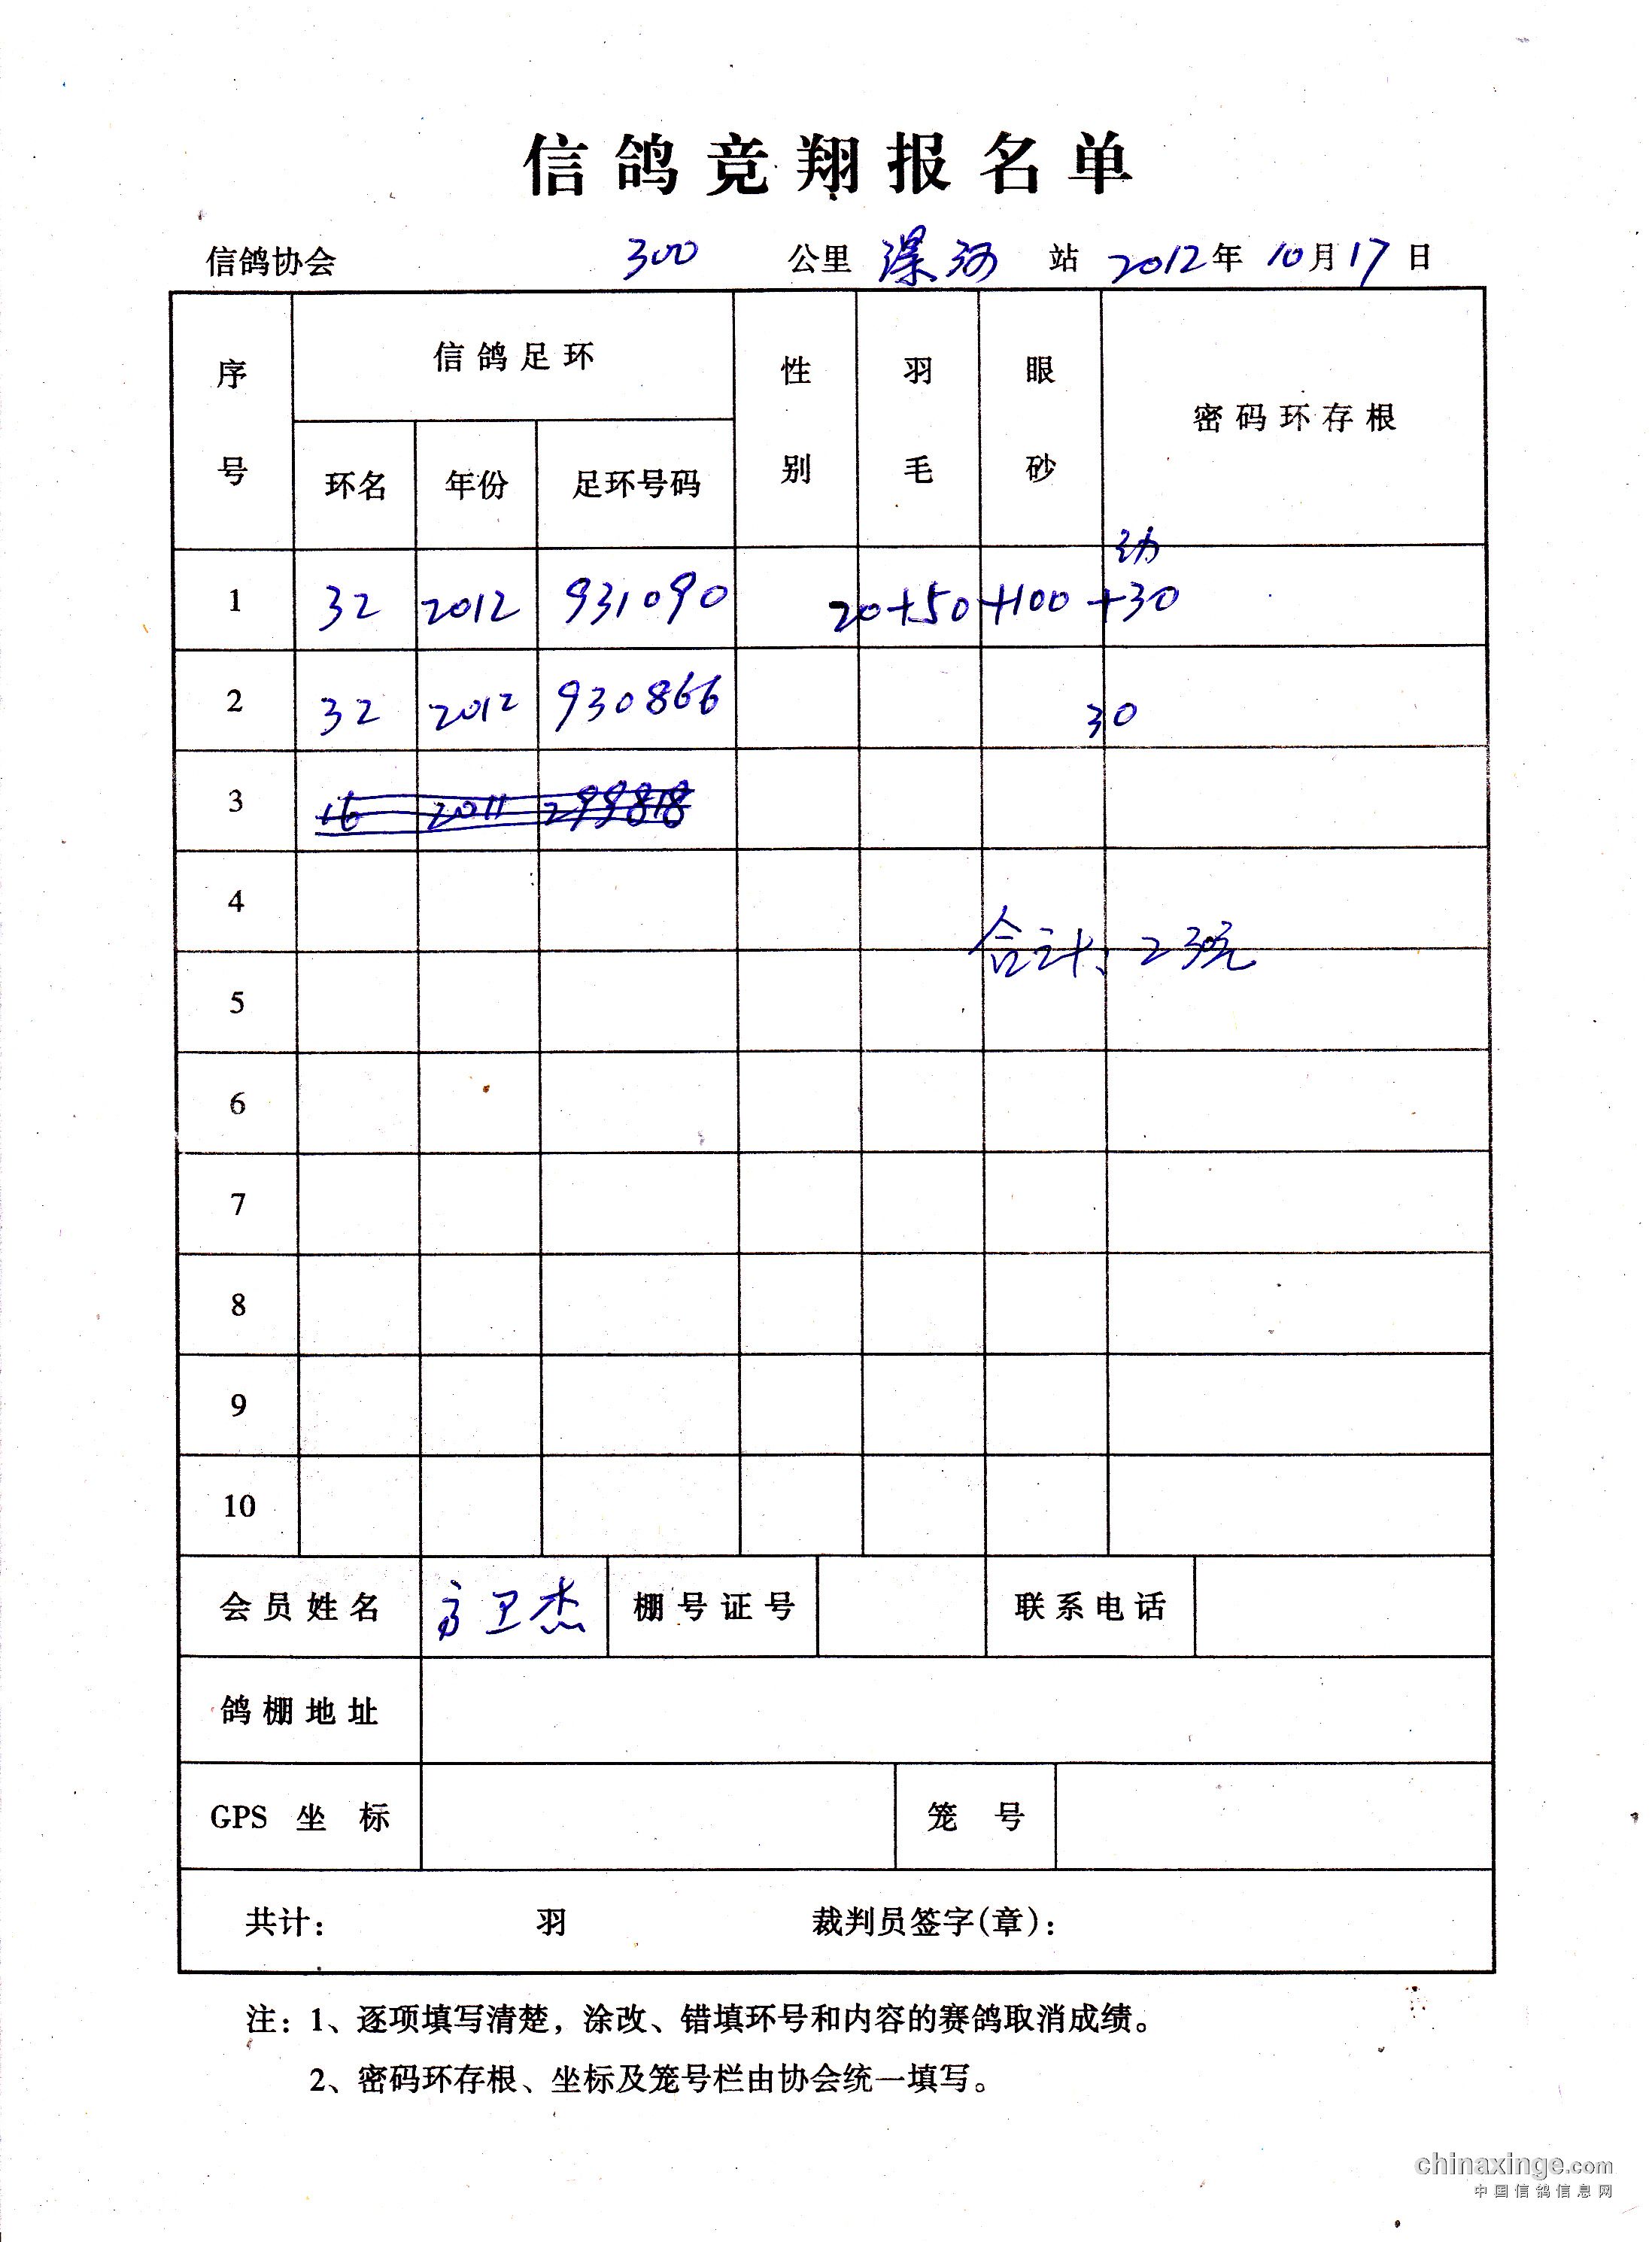 信鸽竞翔报名单
信鸽协会 300 公里 漯河 站 2012年 10月17日
序号 信鸽足环 性别 羽毛 眼砂 密码环存根
环名 年份 足环号码
幼
1 32 2012 931090 20+50+100+30
2 32 2012 930866 30
3 16 2011 299818
4
合计：230元
5
6
7
8
9
10
会员姓名 方卫杰 棚号证号 联系电话
鸽棚地址
GPS 坐标 笼号
共计： 羽 裁判员签字(章)：
注：1、逐项填写清楚，涂改、错填环号和内容的赛鸽取消成绩。
2、密码环存根、坐标及笼号栏由协会统一填写。
chinaxinge.com
中国信鸽信息网